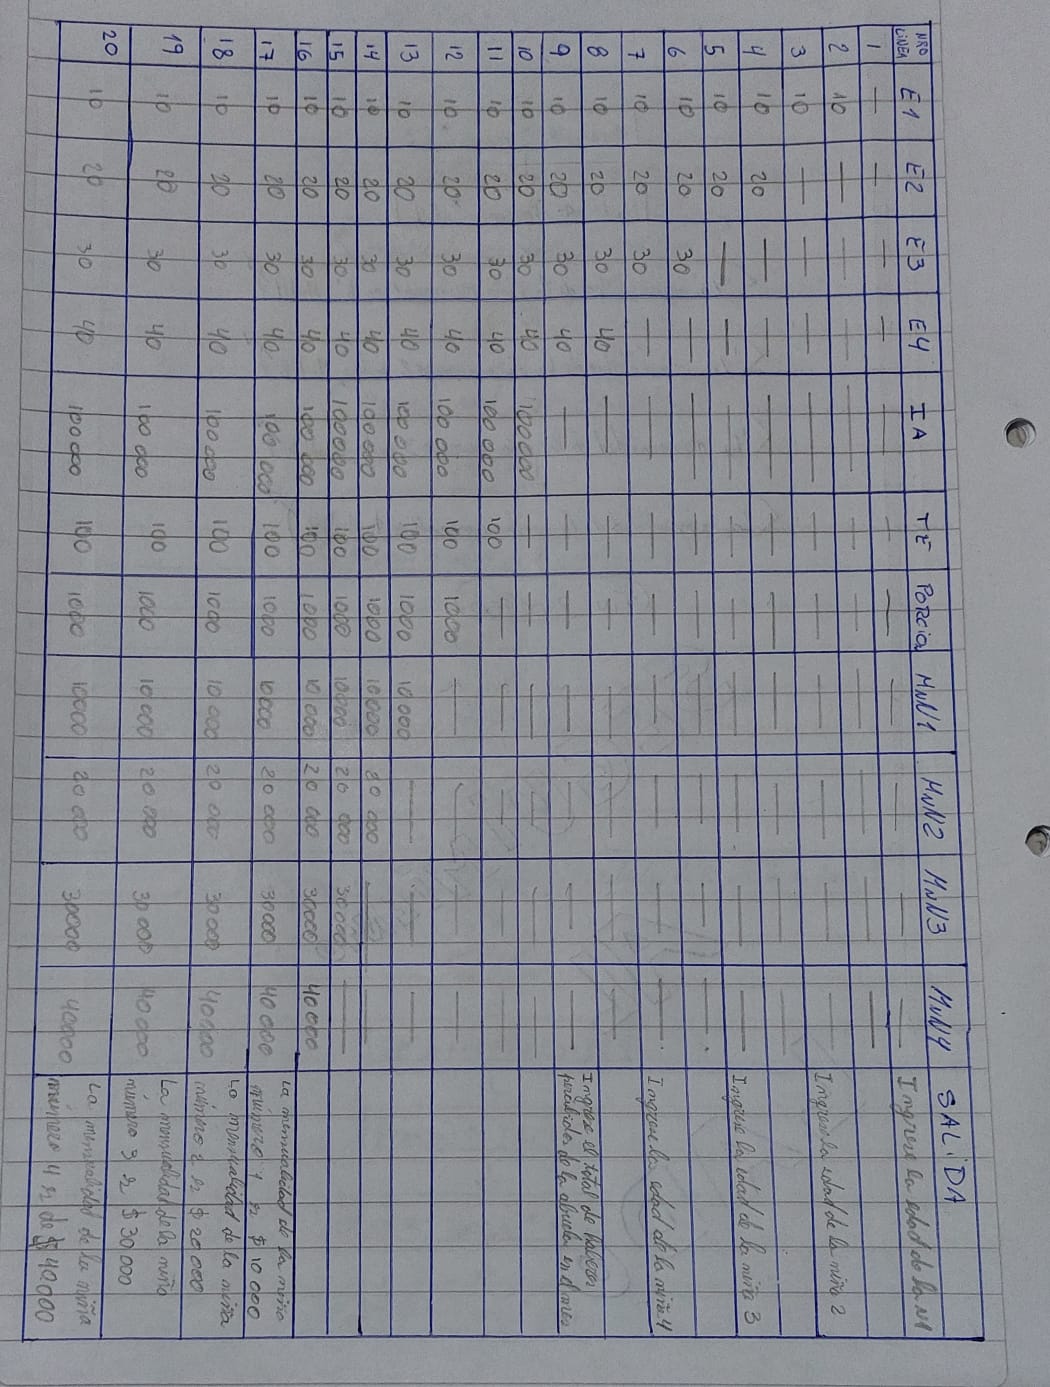 NRO LINEA E1 E2 E3 E4 IA TE Porcion MNN1 MNN2 MNN3 MNN4 SALIDA
1 — — — — — — — — — — — Ingrese la edad de la N1
2 10 — — — — — — — — — —
3 10 — — — — — — — — — — Ingrese la edad de la niña 2
4 10 20 — — — — — — — — —
5 10 20 — — — — — — — — — Ingrese la edad de la niña 3
6 10 20 30 — — — — — — — —
7 10 20 30 — — — — — — — — Ingrese la edad de la niña 4
8 10 20 30 40 — — — — — — —
9 10 20 30 40 — — — — — — — Ingrese el total de haberes
percibidos de la abuela en el mes
10 10 20 30 40 100000 — — — — — —
11 10 20 30 40 100000 100 — — — — —
12 10 20 30 40 100000 100 1000 — — — —
13 10 20 30 40 100000 100 1000 10000 — — —
14 10 20 30 40 100000 100 1000 10000 20000 — —
15 10 20 30 40 100000 100 1000 10000 20000 30000 —
16 10 20 30 40 100000 100 1000 10000 20000 30000 40000
17 10 20 30 40 100000 100 1000 10000 20000 30000 40000 La mensualidad de la niña
número 1 es $10000
18 10 20 30 40 100000 100 1000 10000 20000 30000 40000 La mensualidad de la niña
número 2 es $20000
19 10 20 30 40 100000 100 1000 10000 20000 30000 40000 La mensualidad de la niña
número 3 es $30000
20 10 20 30 40 100000 100 1000 10000 20000 30000 40000 La mensualidad de la niña
número 4 es de $40000